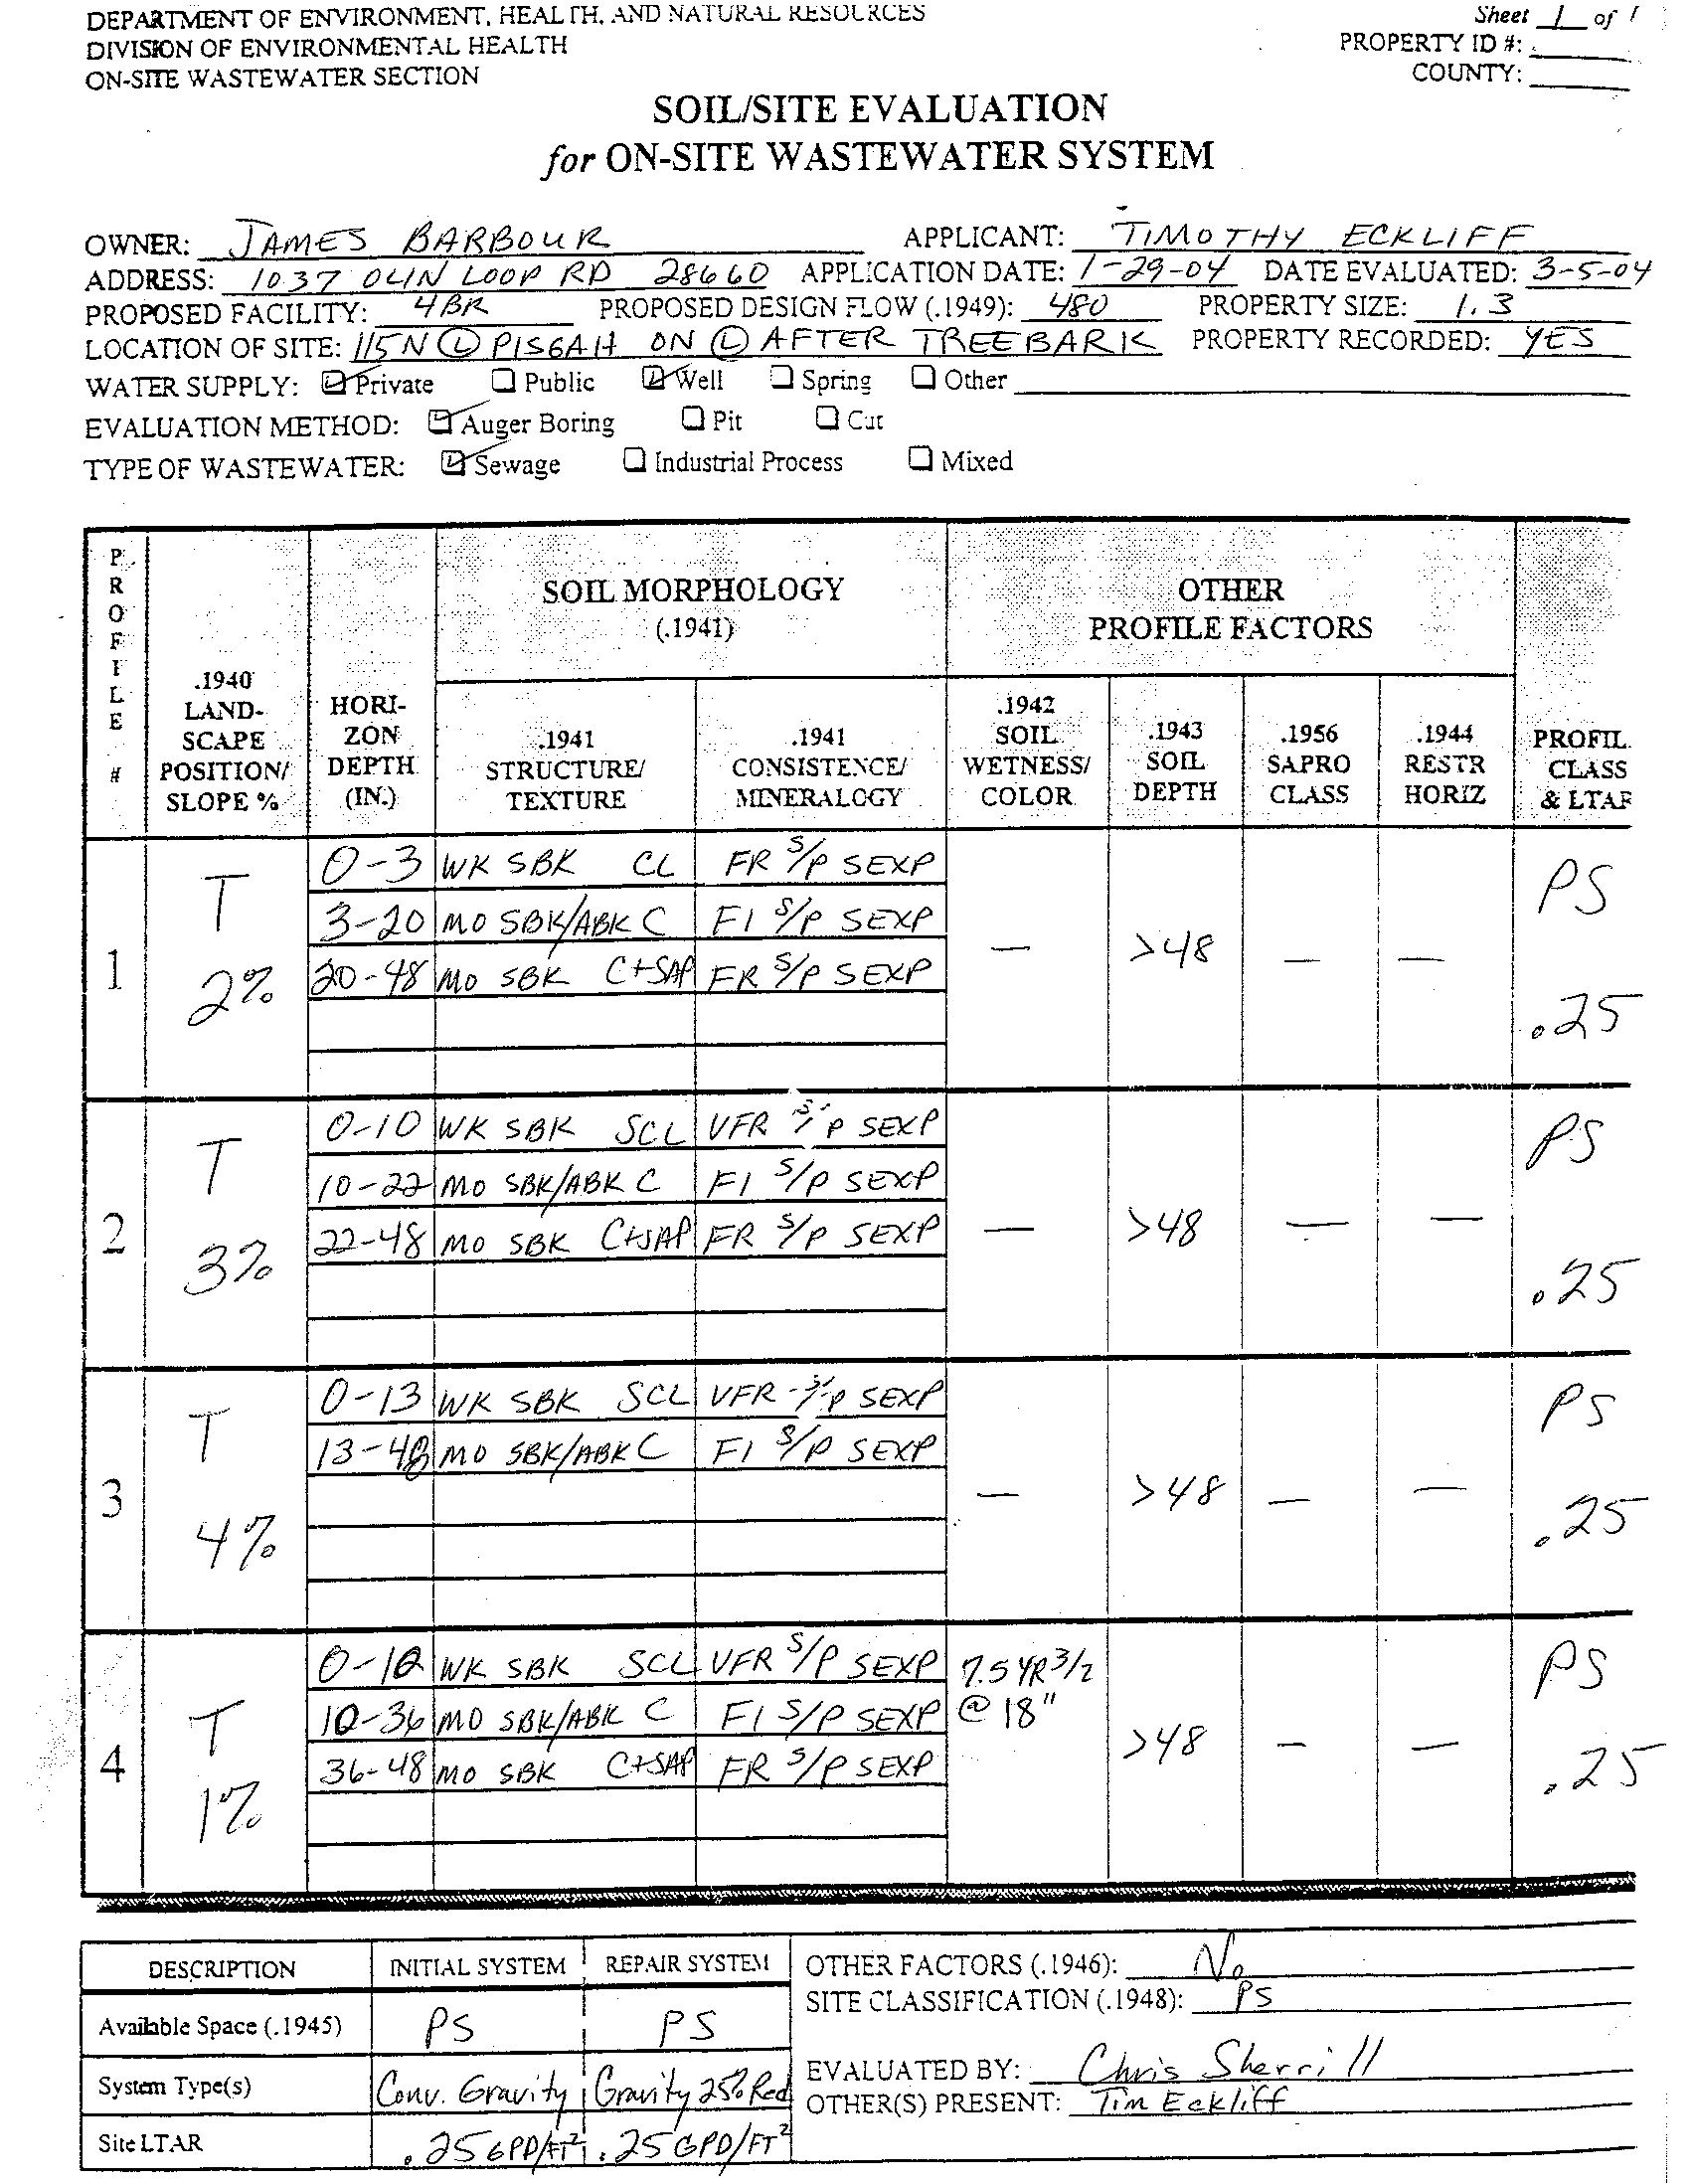 DEPARTMENT OF ENVIRONMENT, HEALTH, AND NATURAL RESOURCES
Sheet 1 of 1
DIVISION OF ENVIRONMENTAL HEALTH
PROPERTY ID #:
ON-SITE WASTEWATER SECTION
COUNTY:
SOIL/SITE EVALUATION
for ON-SITE WASTEWATER SYSTEM
OWNER: JAMES BARBOUR APPLICANT: TIMOTHY ECKLIFF
ADDRESS: 1037 OLIN LOOP RD 28660 APPLICATION DATE: 1-29-04 DATE EVALUATED: 3-5-04
PROPOSED FACILITY: 4BR PROPOSED DESIGN FLOW (.1949): 480 PROPERTY SIZE: 1.3
LOCATION OF SITE: 115N Ⓛ PISGAH ON Ⓛ AFTER TREEBARK PROPERTY RECORDED: YES
WATER SUPPLY: ☑ Private ☐ Public ☑ Well ☐ Spring ☐ Other
EVALUATION METHOD: ☑ Auger Boring ☐ Pit ☐ Cut
TYPE OF WASTEWATER: ☑ Sewage ☐ Industrial Process ☐ Mixed
PROFILE #
.1940 LAND-SCAPE POSITION/ SLOPE %
HORI-ZON DEPTH (IN.)
SOIL MORPHOLOGY
(.1941)
.1941 STRUCTURE/ TEXTURE
.1941 CONSISTENCE/ MINERALOGY
OTHER
PROFILE FACTORS
.1942 SOIL WETNESS/ COLOR
.1943 SOIL DEPTH
.1956 SAPRO CLASS
.1944 RESTR HORIZ
PROFIL CLASS & LTAR
1 T 2%
0-3 WK SBK CL FR S/P SEXP
3-20 MO SBK/ABK C FI S/P SEXP
20-48 MO SBK C+SAP FR S/P SEXP
— >48 — — PS .25
2 T 3%
0-10 WK SBK SCL VFR S/P SEXP
10-22 MO SBK/ABK C FI S/P SEXP
22-48 MO SBK C+SAP FR S/P SEXP
— >48 — — PS .25
3 T 4%
0-13 WK SBK SCL VFR S/P SEXP
13-48 MO SBK/ABK C FI S/P SEXP
— >48 — — PS .25
4 T 1%
0-10 WK SBK SCL VFR S/P SEXP
10-36 MO SBK/ABK C FI S/P SEXP
36-48 MO SBK C+SAP FR S/P SEXP
7.5 YR 3/2
@ 18"
>48 — — PS .25
DESCRIPTION INITIAL SYSTEM REPAIR SYSTEM
Available Space (.1945) PS PS
System Type(s) Conv. Gravity Gravity 25% Red
Site LTAR .25 GPD/FT² .25 GPD/FT²
OTHER FACTORS (.1946): No
SITE CLASSIFICATION (.1948): PS
EVALUATED BY: Chris Sherrill
OTHER(S) PRESENT: Tim Eckliff